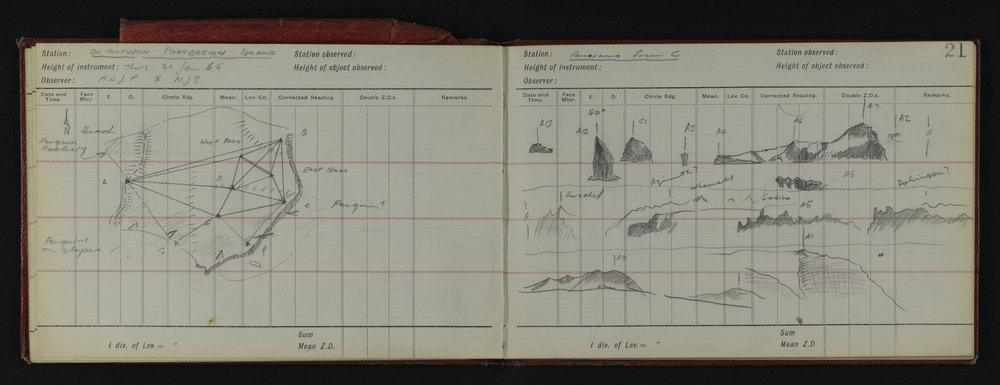 Station: On Northern Possession Island Station observed:
Height of instrument: Thurs. 20 Jan 66 Height of object observed:
Observer: MRJF & MJS
Date and Time. Face Micr. E. O. Circle Rdg. Mean. Lev. Cn. Corrected Reading. Double Z.D.s. Remarks
N
Beach
Penguin Rookery
West Base
B
East Base
A
D
C
Penguins
Penguins on slopes
G
Sum
1 div. of Lev. = " Mean Z.D.
21
Station: Panorama from C Station observed:
Height of instrument: Height of object observed:
Observer:
Date and Time. Face Micr. E. O. Circle Rdg. Mean. Lev. Cn. Corrected Reading. Double Z.D.s. Remarks.
A13 A12 C1 A3 A4 A6 A7 A2
Herschel Sabine A8 Robinson?
A5
A1
A9
Sum
1 div. of Lev. = " Mean Z.D